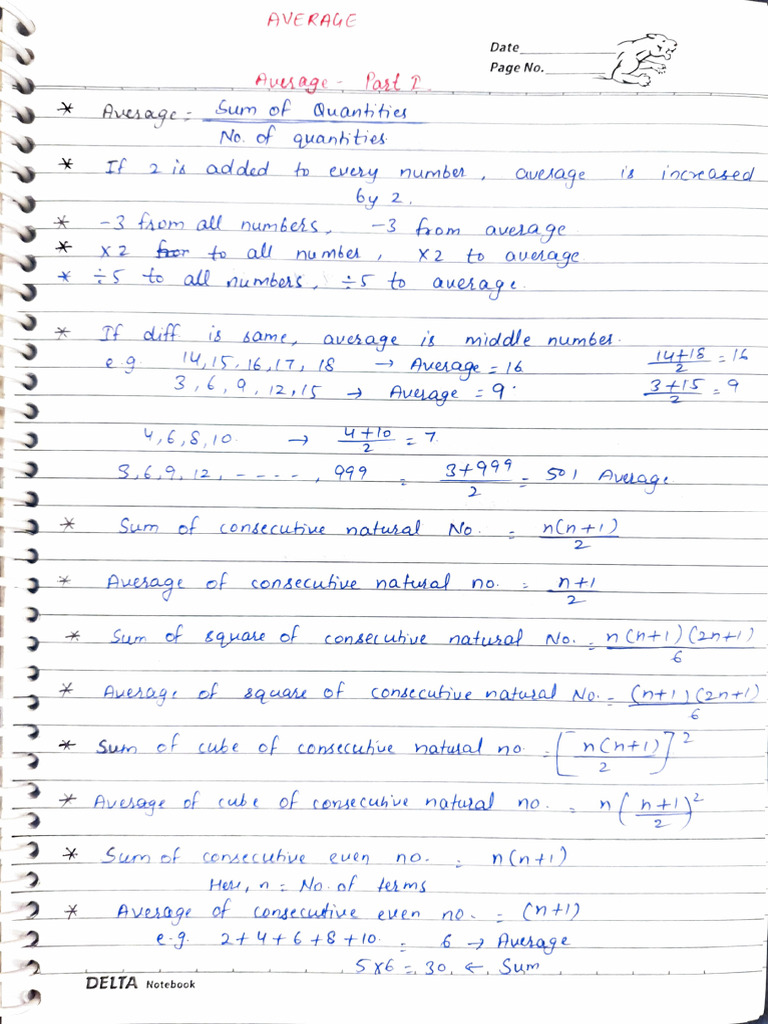 AVERAGE
Date
Page No.
Average - Part I.
* Average = Sum of Quantities / No. of quantities
* If 2 is added to every number, average is increased
by 2.
* -3 from all numbers, -3 from average
* ×2 to all number, ×2 to average
* ÷5 to all numbers, ÷5 to average.
* If diff is same, average is middle number.
e.g. 14, 15, 16, 17, 18 → Average = 16 (14+18)/2 = 16
3, 6, 9, 12, 15 → Average = 9 (3+15)/2 = 9
4, 6, 8, 10. → (4+10)/2 = 7.
3, 6, 9, 12, - - - -, 999 = (3+999)/2 = 501 Average
* Sum of consecutive natural No. = n(n+1)/2
* Average of consecutive natural no. = (n+1)/2
* Sum of square of consecutive natural No. = n(n+1)(2n+1)/6
* Average of square of consecutive natural No. = (n+1)(2n+1)/6
* Sum of cube of consecutive natural no = [n(n+1)/2]²
* Average of cube of consecutive natural no. = n((n+1)/2)²
* Sum of consecutive even no. = n(n+1)
Here, n = No. of terms
* Average of consecutive even no. = (n+1)
e.g. 2+4+6+8+10 = 6 → Average
5×6 = 30. ← Sum
DELTA Notebook